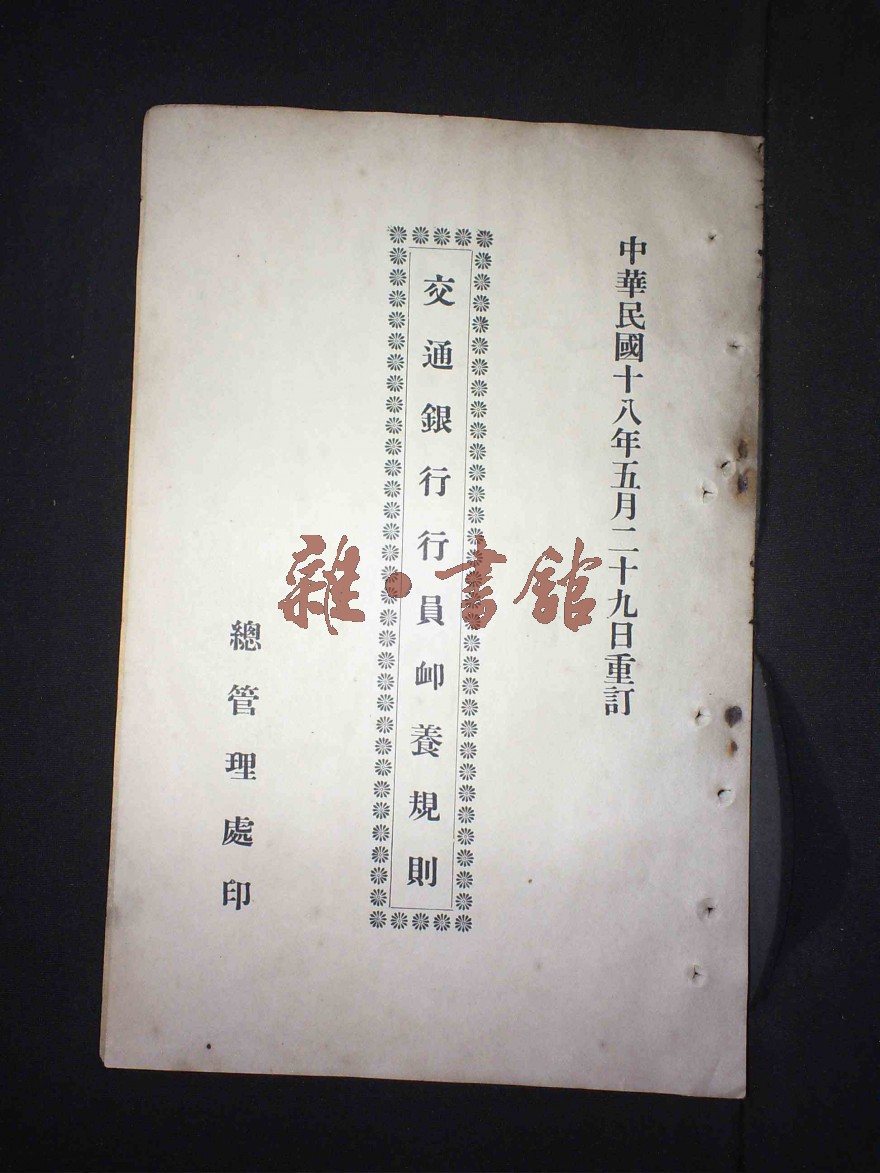 中華民國十八年五月二十九日重訂
交通銀行行員卹養規則
總管理處印
雜·書館